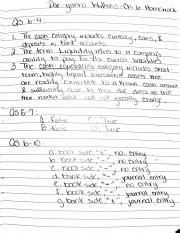 Williams - Ch 6 Homework
QS 6-4:
1. The cash category includes currency, coins, &
deposits in bank accounts.
2. The term liquidity refers to a company's
ability to pay for its current liabilities
3. The cash equivalents category includes small
term, highly liquid investment assets that
are readily convertible to a known cash amount
& sufficiently close to their due dates so that
their market value will not greatly change.
QS 6-7:
A. false C. True
B. false D. True
QS 6-10:
a. book side no entry
b. bank side no entry
c. bank side no entry
d. book side journal entry
e. book side journal entry
f. bank side no entry
g. book side journal entry